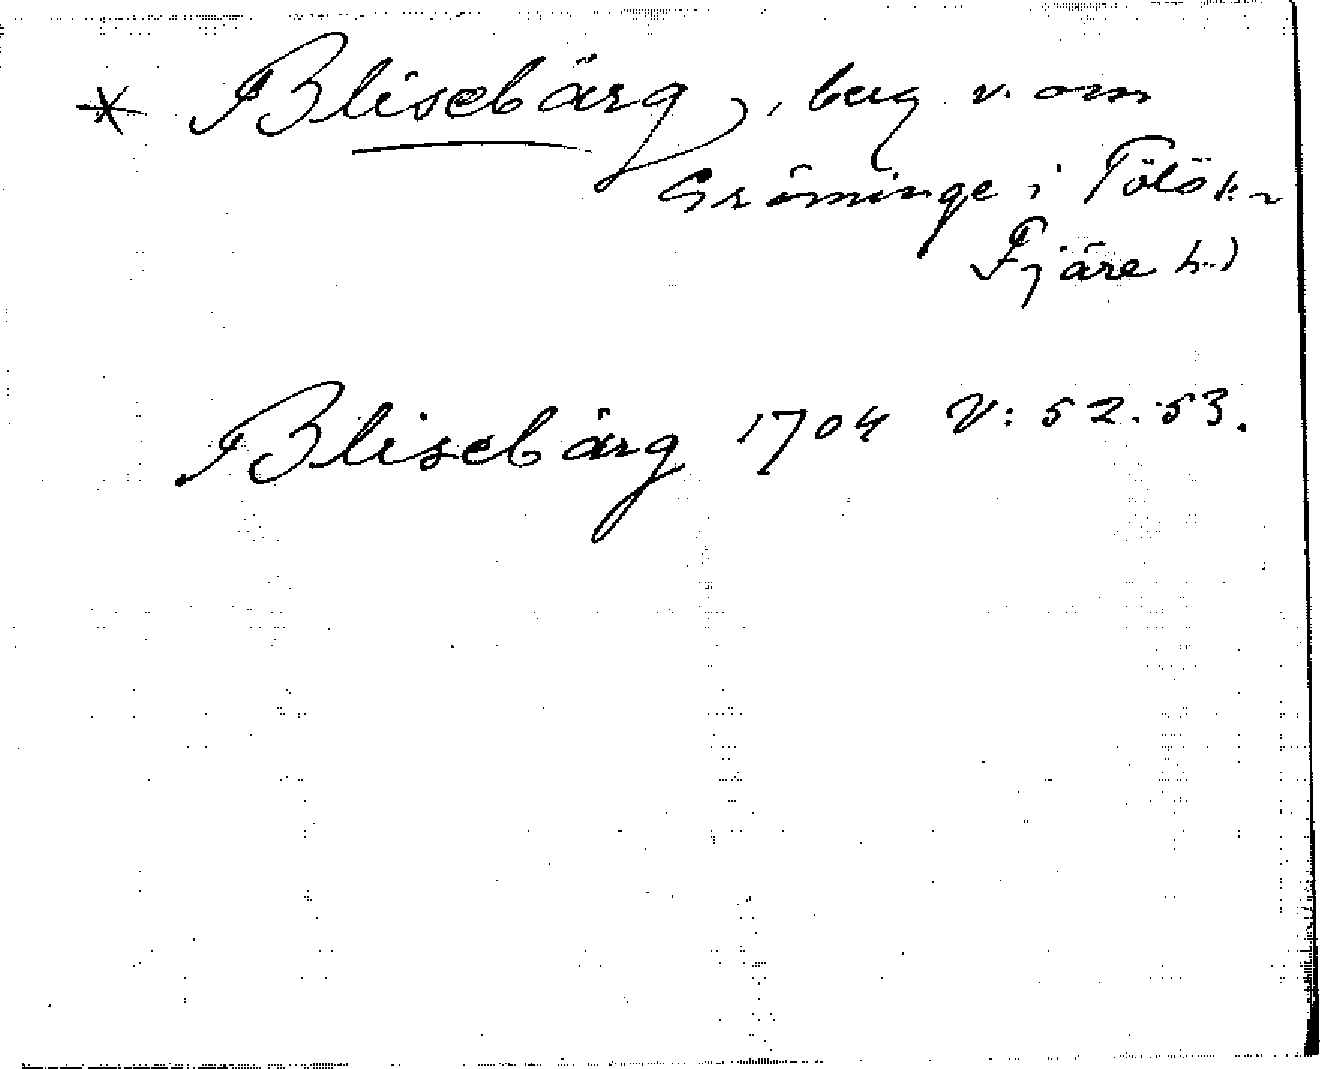 * Blisebärg, berg v. om
Gröninge i Tölö sn
Fjäre hd
Blisebärg 1704 V: 52-53.